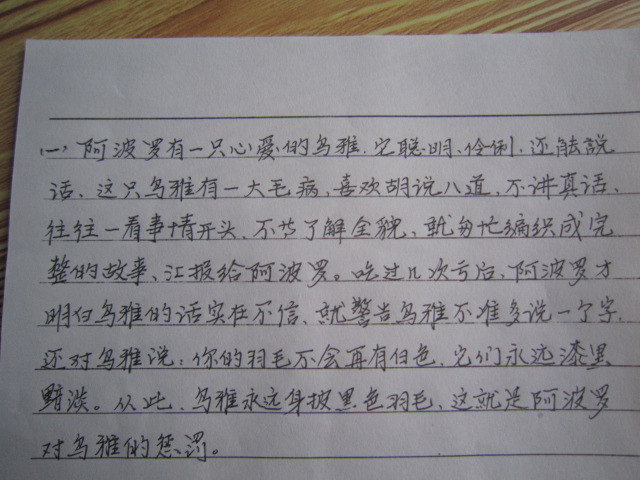 (一) 阿波罗有一只心爱的乌鸦,它聪明、伶俐,还能説
话、这只乌鸦有一大毛病,喜欢胡说八道,不讲真话、
往往一看事情开头,不等了解全貌、就匆忙编织成完
整的故事、汇报给阿波罗。吃过几次亏后,阿波罗才
明白乌鸦的话实在不信、就警告乌鸦不准多说一个字,
还对乌鸦说:你的羽毛不会再有白色,它们永远漆黑
黯淡。从此、乌鸦永远身披黑色羽毛、这就是阿波罗
对乌鸦的惩罚。